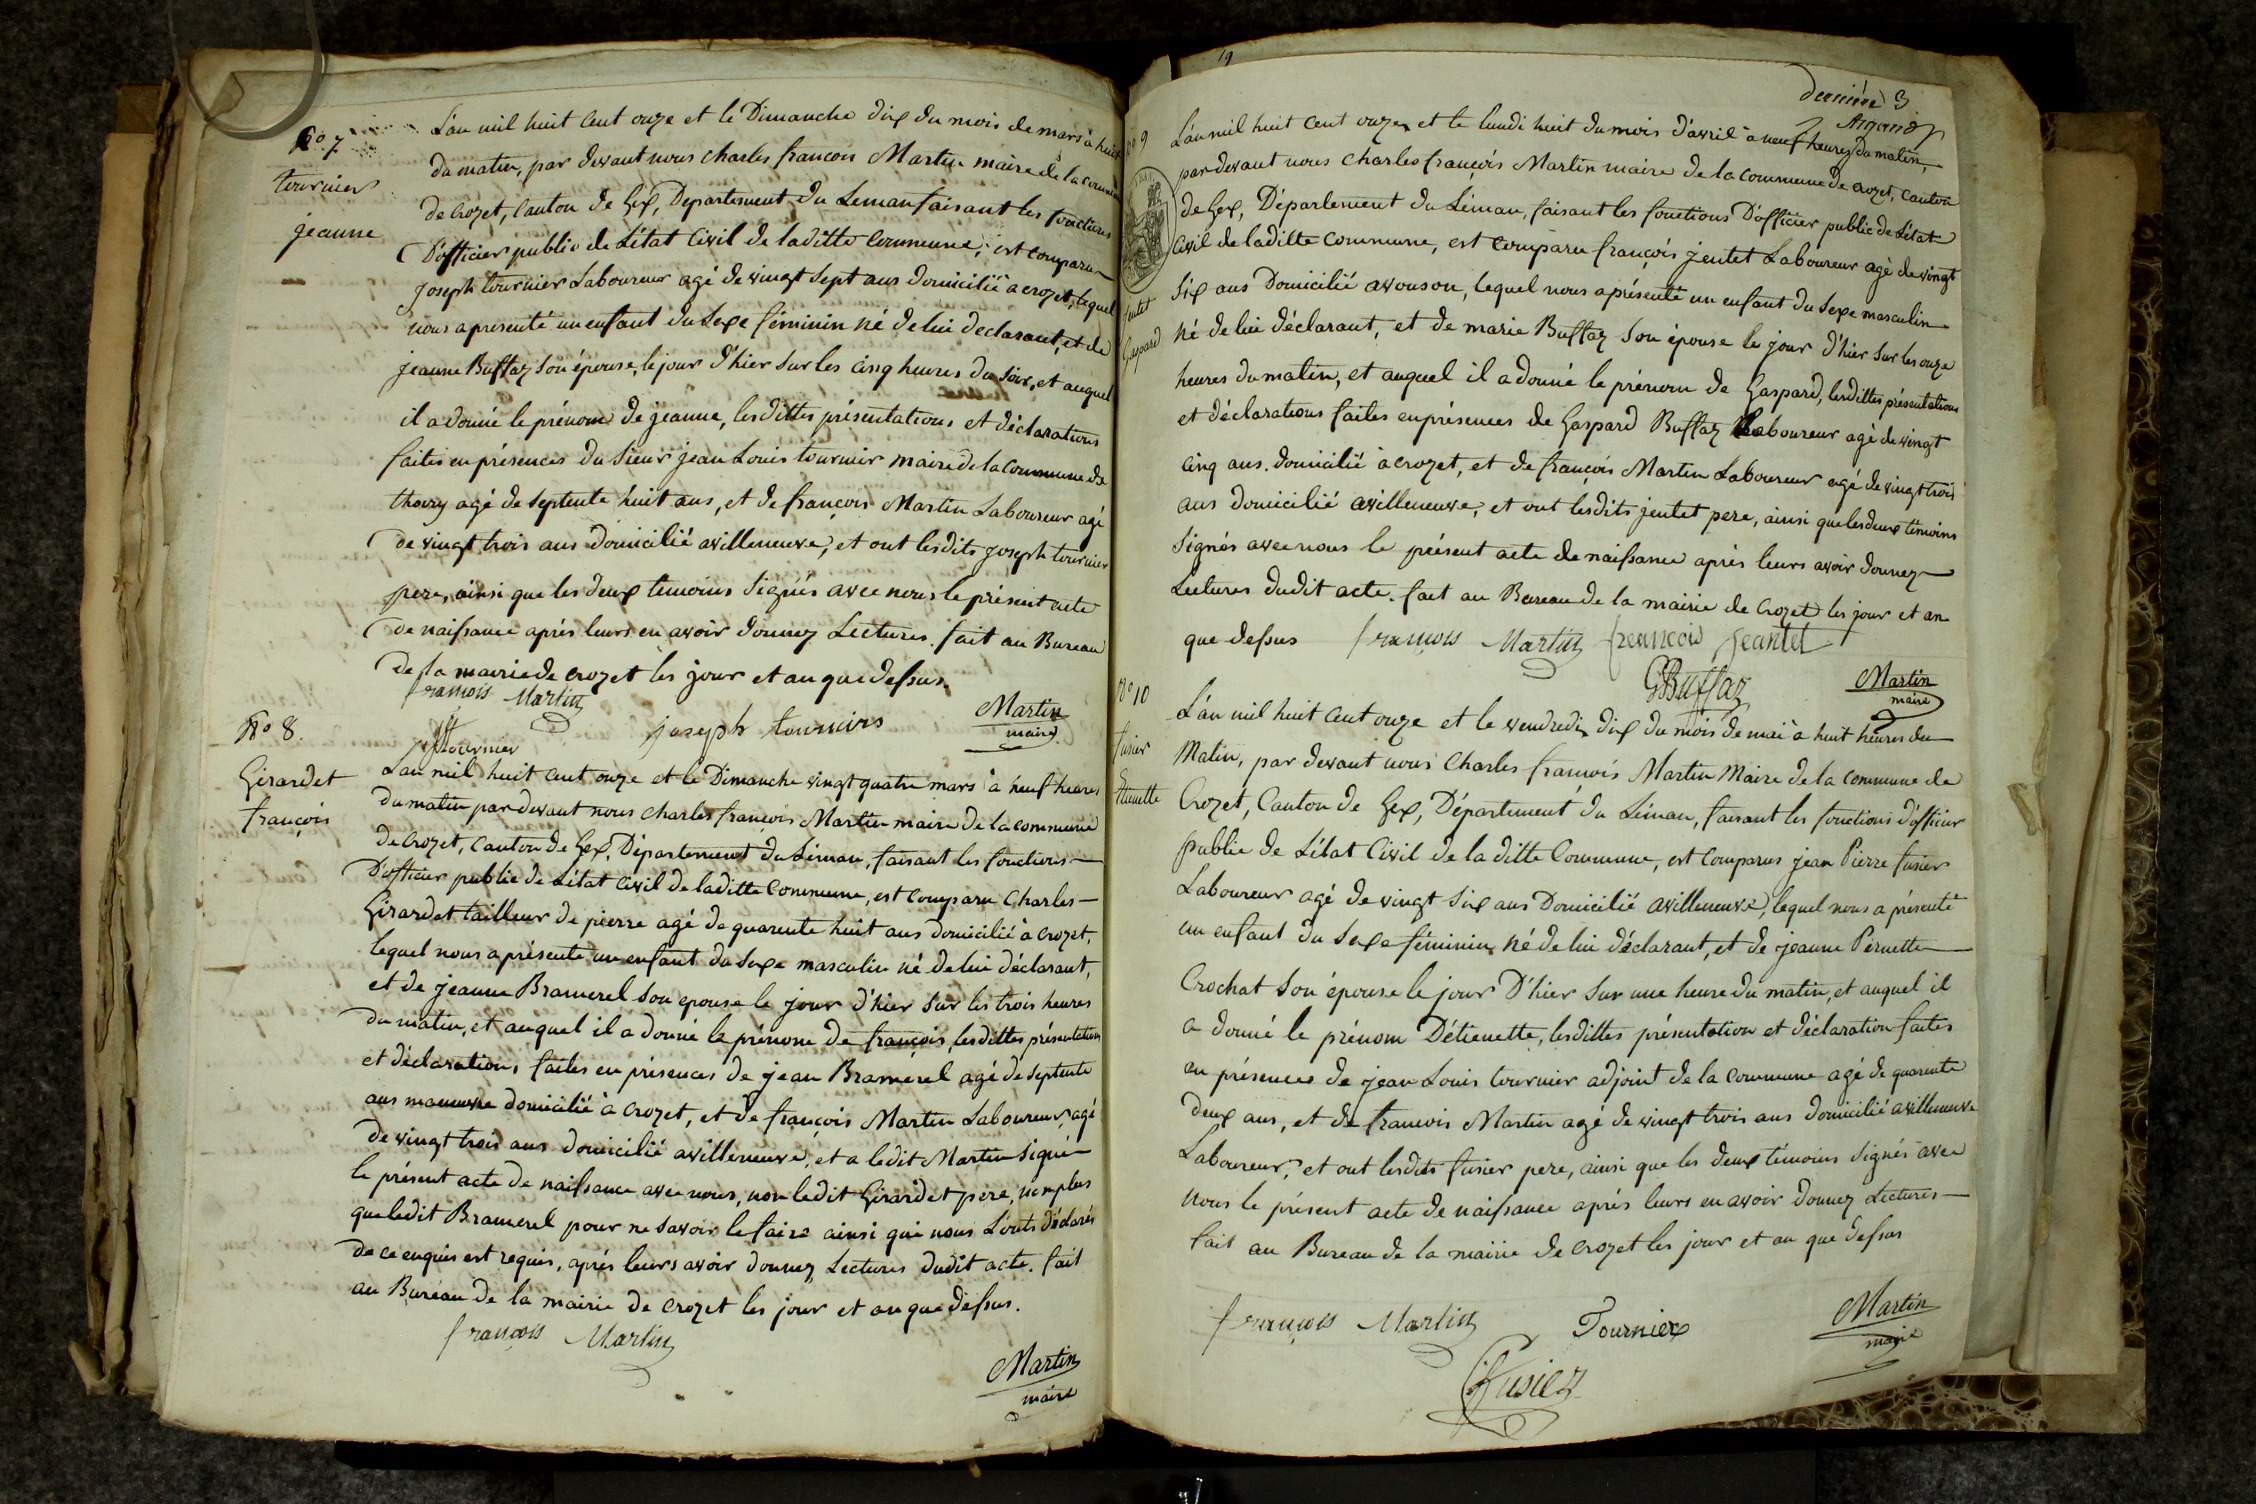 No 7
tournier
jeanne
L'an mil huit Cent onze et le Dimanche dix du mois de mars à huit
du matin, par devant nous charles francois Martin maire de la commune
de Crozet, Canton de Gex, Departement du Leman faisant les fonctions
D'officier public de L'état Civil de laditte Commune, est comparu
Joseph tournier Laboureur agé de vingt sept ans domicilié a crozet, lequel
nous apresenté un enfant du Sexe féminin né de lui declarant, et de
jeanne Buffaz son épouse, le jour d'hier sur les cinq heures du soir, et auquel
il a donné le prénom de jeanne, lesdittes présentations et déclarations
faites en présences du Sieur jean Louis tournier maire de la Commune de
thoiry agé de septente huit ans, et de françois Martin Laboureur agé
de vingt trois ans domicilié avilleneuve, et ont lesdits joseph tournier
pere, ainsi que les deux temoins signés avec nous le présent acte
de naissance après leurs en avoir donnez Lectures. fait au Bureau
de la mairie de crozet les jour et an que dessus.
françois Martin
Tournier
joseph tournier
Martin
maire
No 8.
Girardet
françois
L'an mil huit cent onze et le Dimanche vingt quatre mars à neuf heures
du matin par devant nous charles françois Martin maire de la commune
de Crozet, Canton de Gex, Département du Léman, faisant les fonctions
D'officier public de L'état Civil de laditte Commune, est comparu Charles
Girardet tailleur de pierre agé de quarente huit ans domicilié à Crozet,
lequel nous aprésenté un enfant du Sexe masculin né de lui déclarant,
et de jeanne Bramerel son epouse le jour d'hier sur les trois heures
du matin, et auquel il a donné le prénom de françois, lesdittes présentations
et déclarations faites en présences de jean Bramerel agé de septente
ans maneuvre domicilié à crozet, et de françois Martin Laboureur agé
de vingt trois ans domicilié avilleneuve, et a ledit Martin signé
le présent acte de naissance avec nous, non ledit Girardet pere, non plus
que ledit Bramerel pour ne savoir le faire ainsi qui nous L'onts déclarés
de ce enquis est requis, après leurs avoir donnez Lectures dudit acte. fait
au Bureau de la mairie de Crozet les jour et an que dessus.
françois Martin
Martin
maire
dernière 3
No 9
jentet
Gaspard
L'an mil huit cent onze, et le lundi huit du mois d'avril à neuf heures du matin,
par devant nous charles françois Martin maire de la commune de Crozet, canton
de Gex, Département du Léman, faisant les fonctions D'officier public de L'état
Civil de laditte commune, est comparu françois jentet Laboureur agé de vingt
six ans Domicilié avouson, lequel nous aprésenté un enfant du Sexe masculin
né de lui déclarant, et de marie Buffaz son épouse le jour d'hier sur les onze
heures du matin, et auquel il a donné le prénom de Gaspard, lesdittes présentations
et déclarations faites en présences de Gaspard Buffaz Laboureur agé de vingt
cinq ans. domicilié à crozet, et de françois Martin Laboureur agé de vingt trois
ans domicilié avilleneuve, et ont lesdits jentet pere, ainsi que les deux témoins
signés avec nous le présent acte de naissance après leurs avoir donnez
Lectures dudit acte. fait au Bureau de la mairie de Crozet les jour et an
que dessus
françois Martin
francois Jeantet
GBuffaz
Martin
maire
No 10
fusier
Etienette
L'an mil huit Cent onze et le vendredi dix du mois de mai à huit heures du
Matin, par devant nous Charles francois Martin Maire de la commune de
Crozet, Canton de Gex, Département du Léman, faisant les fonctions d'officier
public de L'état Civil de la ditte Commune, est comparus jean Pierre fusier
Laboureur agé de vingt six ans Domicilié avilleneuve, lequel nous a présenté
un enfant du Sexe féminin né de lui déclarant, et de jeanne Pernette
Crochat son épouse le jour D'hier sur une heure du matin, et auquel il
a donné le prénom Détienette, lesdittes présentation et déclaration faites
en présences de jean Louis tournier adjoint de la commune agé de quarente
deux ans, et de francois Martin agé de vingt trois ans domicilié avilleneuve
Laboureur, et ont lesdits fusier pere, ainsi que les deux témoins signés avec
nous le présent acte de naissance après leurs en avoir donnez Lectures
fait au Bureau de la mairie de crozet les jour et an que dessus
françois Martin
Tournier
Martin
maire
Fusier